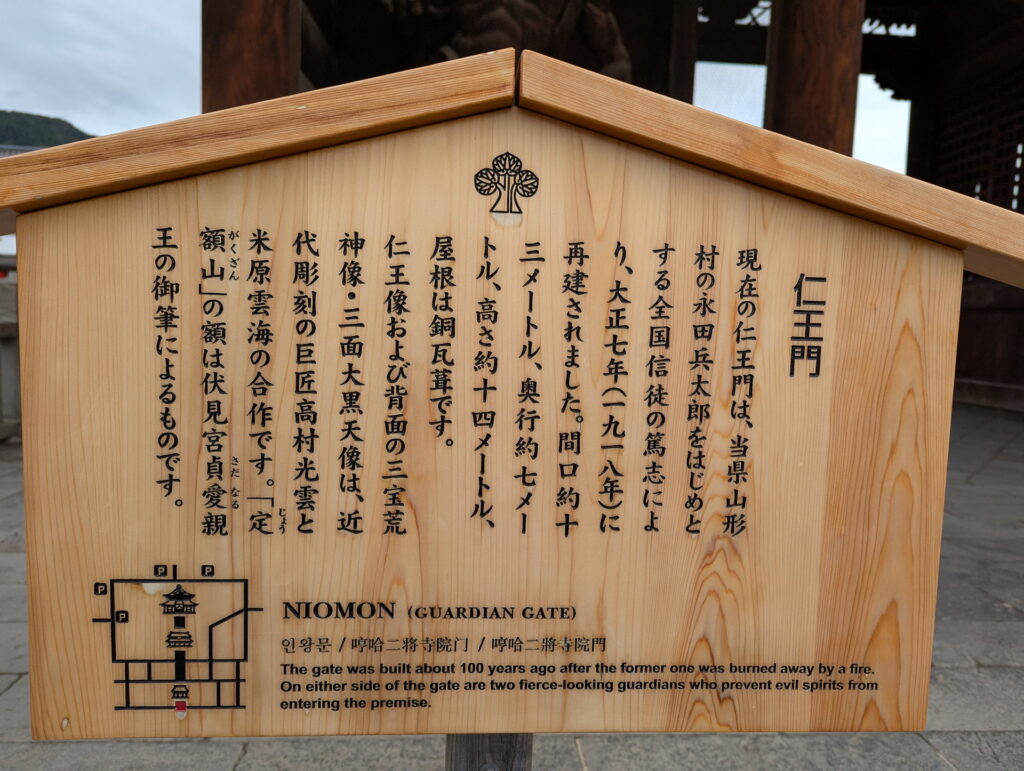 仁王門
現在の仁王門は、当県山形
村の永田兵太郎をはじめと
する全国信徒の篤志によ
り、大正七年(一九一八年)に
再建されました。間口約十
三メートル、奥行約七メー
トル、高さ約十四メートル、
屋根は銅瓦葺です。
仁王像および背面の三宝荒
神像・三面大黒天像は、近
代彫刻の巨匠高村光雲と
米原雲海の合作です。「定
じょう
額山」の額は伏見宮貞愛親
がくざん
さだ なる
王の御筆によるものです。
P
P
P
P
NIOMON (GUARDIAN GATE)
인왕문 / 哼哈二将寺院门 / 哼哈二將寺院門
The gate was built about 100 years ago after the former one was burned away by a fire.
On either side of the gate are two fierce-looking guardians who prevent evil spirits from
entering the premise.